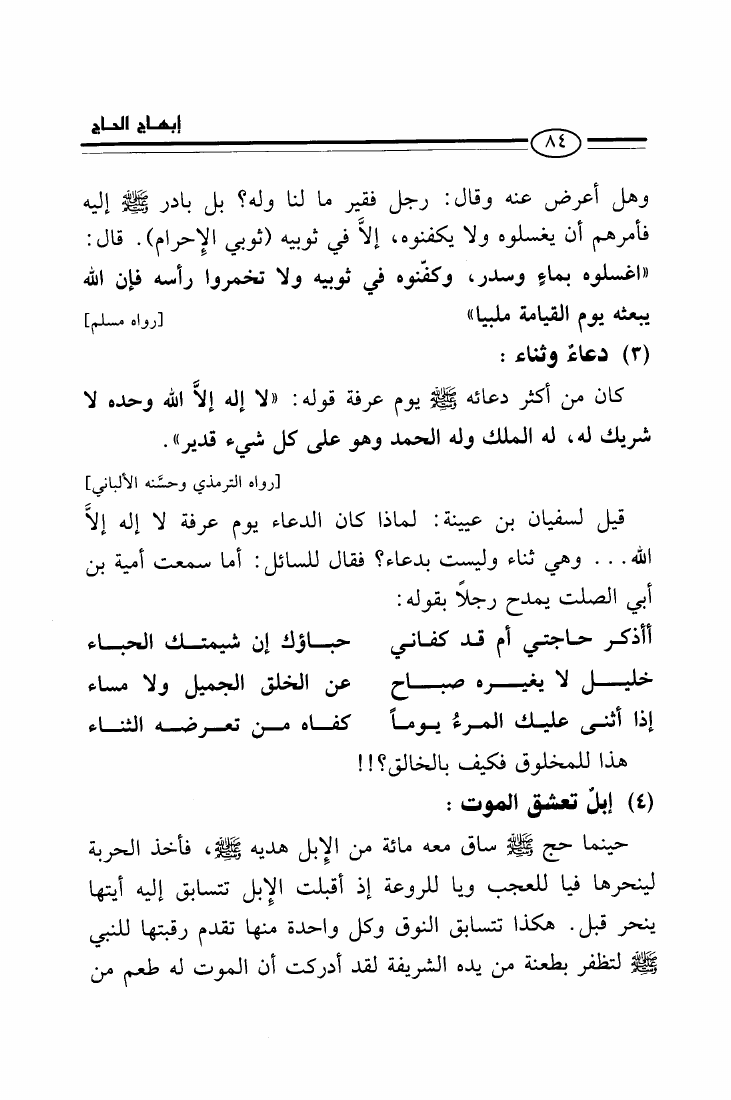 إبهاج الحاج
٨٤
وهل أعرض عنه وقال: رجل فقير ما لنا وله؟ بل بادر ﷺ إليه
فأمرهم أن يغسلوه ولا يكفنوه، إلاَّ في ثوبيه (ثوبي الإحرام). قال:
«اغسلوه بماءٍ وسدر، وكفّنوه في ثوبيه ولا تخمروا رأسه فإن الله
يبعثه يوم القيامة ملبيا» [رواه مسلم]
(٣) دعاءٌ وثناء :
كان من أكثر دعائه ﷺ يوم عرفة قوله: «لا إله إلاَّ الله وحده لا
شريك له، له الملك وله الحمد وهو على كل شيء قدير».
[رواه الترمذي وحسَّنه الألباني]
قيل لسفيان بن عيينة: لماذا كان الدعاء يوم عرفة لا إله إلاَّ
الله... وهي ثناء وليست بدعاء؟ فقال للسائل: أما سمعت أمية بن
أبي الصلت يمدح رجلاً بقوله:
أأذكر حاجتي أم قد كفاني حباؤك إن شيمتك الحباء
خليل لا يغيره صباح عن الخلق الجميل ولا مساء
إذا أثنى عليك المرءُ يوماً كفاه من تعرضه الثناء
هذا للمخلوق فكيف بالخالق؟!!
(٤) إبلٌ تعشق الموت :
حينما حج ﷺ ساق معه مائة من الإبل هديه ﷺ، فأخذ الحربة
لينحرها فيا للعجب ويا للروعة إذ أقبلت الإبل تتسابق إليه أيتها
ينحر قبل. هكذا تتسابق النوق وكل واحدة منها تقدم رقبتها للنبي
ﷺ لتظفر بطعنة من يده الشريفة لقد أدركت أن الموت له طعم من